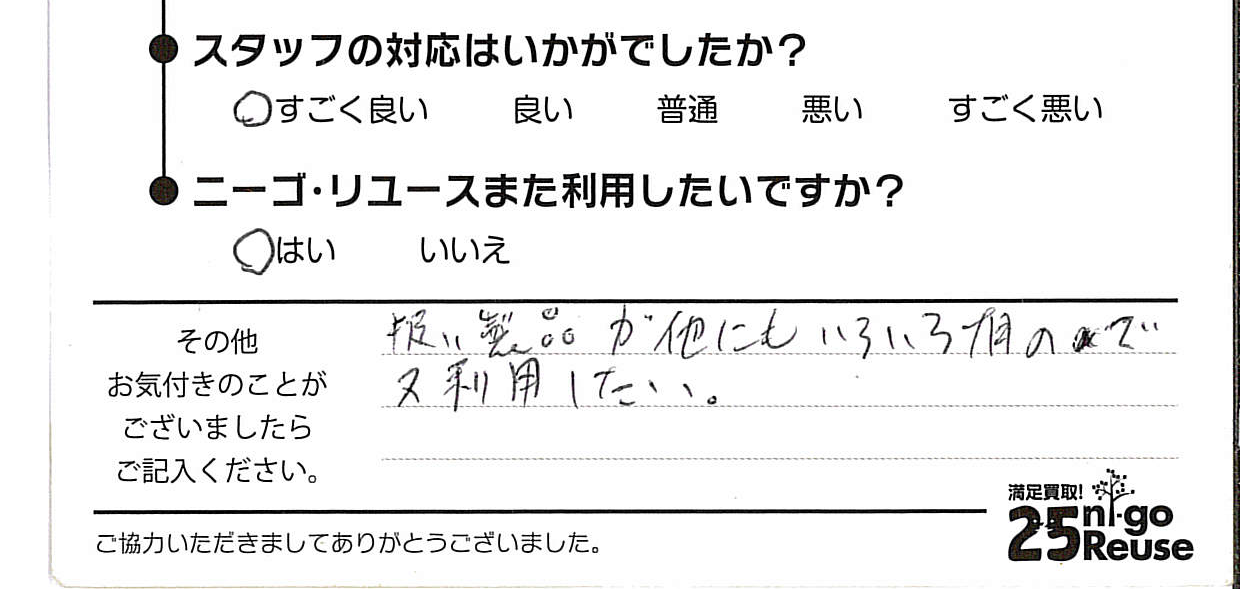 スタッフの対応はいかがでしたか?
すごく良い 良い 普通 悪い すごく悪い
ニーゴ・リユースまた利用したいですか?
はい いいえ
その他
お気付きのことが
ございましたら
ご記入ください。
扱い製品が他にもいろいろ有るので
又利用したい。
満足買取!
25 ni-go
Reuse
ご協力いただきましてありがとうございました。